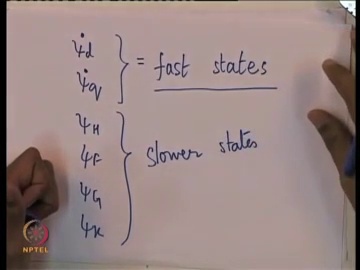 ψ̇d
ψ̇q } = fast states
ψH
ψF
ψG
ψK } slower states
NPTEL